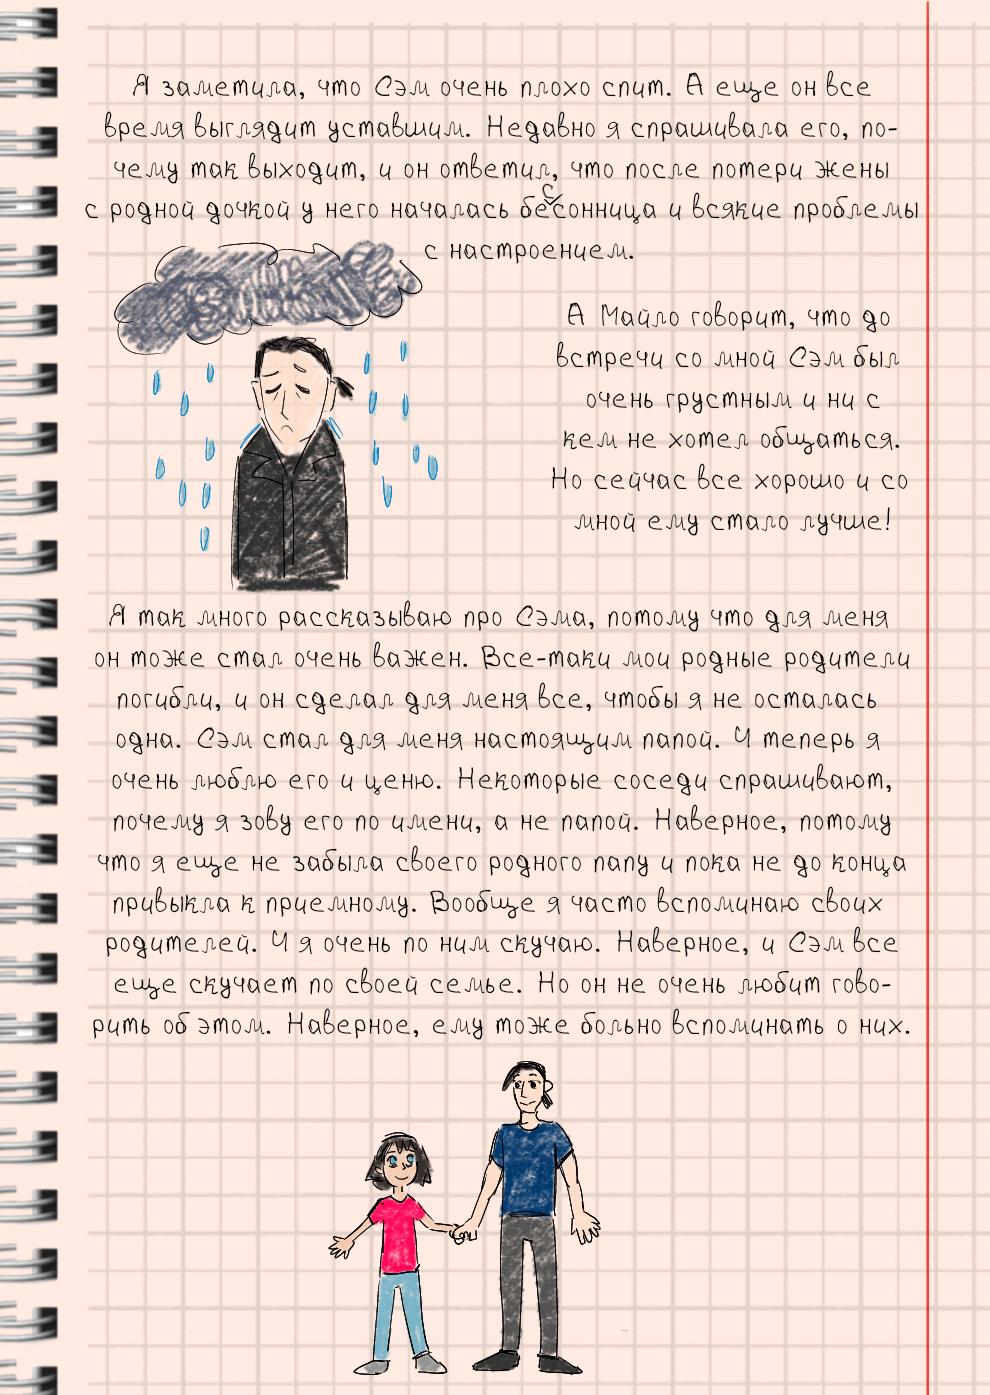 Я заметила, что Сэм очень плохо спит. А еще он все
время выглядит уставшим. Недавно я спрашивала его, по-
чему так выходит, и он ответил, что после потери жены
с родной дочкой у него началась бессонница и всякие проблемы
с настроением.
А Майло говорит, что до
встречи со мной Сэм был
очень грустным и ни с
кем не хотел общаться.
Но сейчас все хорошо и со
мной ему стало лучше!
Я так много рассказываю про Сэма, потому что для меня
он тоже стал очень важен. Все-таки мои родные родители
погибли, и он сделал для меня все, чтобы я не осталась
одна. Сэм стал для меня настоящим папой. И теперь я
очень люблю его и ценю. Некоторые соседи спрашивают,
почему я зову его по имени, а не папой. Наверное, потому
что я еще не забыла своего родного папу и пока не до конца
привыкла к приемному. Вообще я часто вспоминаю своих
родителей. И я очень по ним скучаю. Наверное, и Сэм все
еще скучает по своей семье. Но он не очень любит гово-
рить об этом. Наверное, ему тоже больно вспоминать о них.